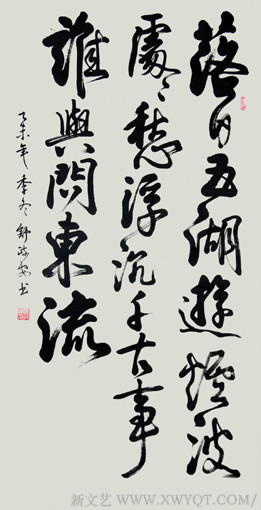 落日五湖遊煙波
處々愁浮沉千古事
誰與問東流
乙未年季冬舒書
新文艺 WWW.XWYQT.COM/